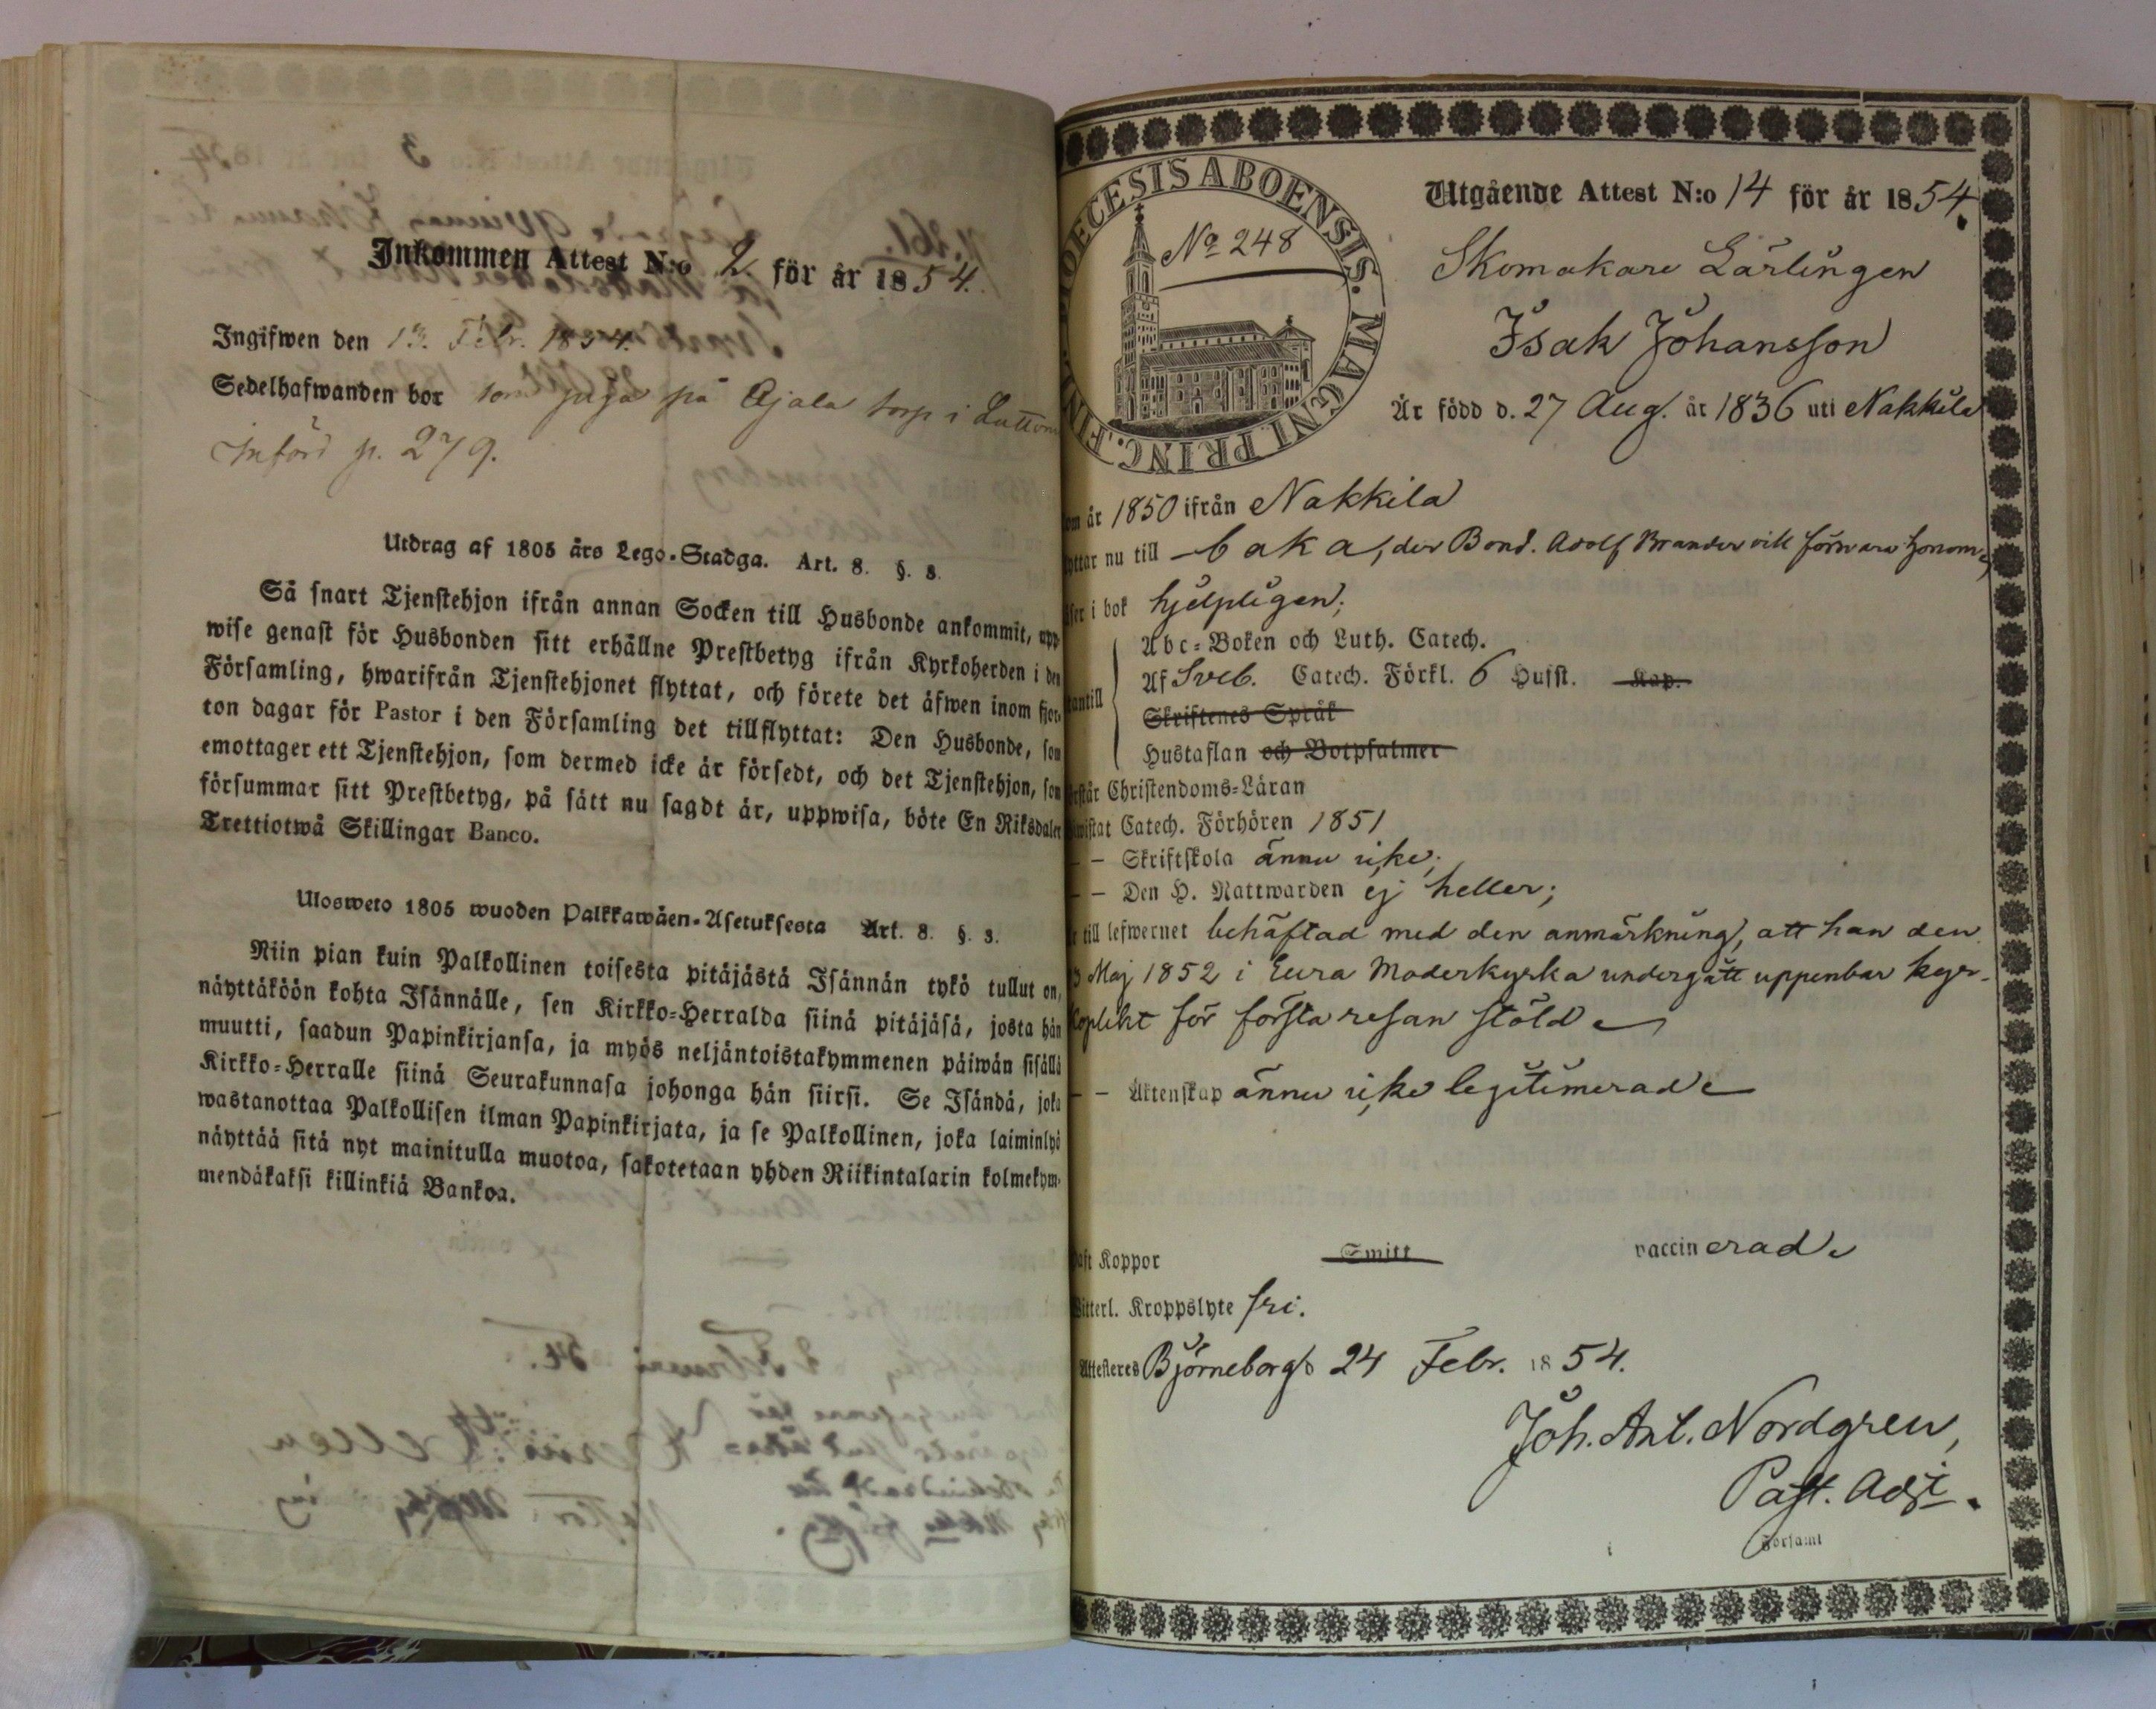 Inkommen Attest N:o 2. för år 1854.
Ingifwen den 13. Febr. 1854.
Sedelhafwanden bor som piga på Ajala torp i Luttom
Införd p. 279.
Utdrag af 1805 års Lego-Stadga. Art. 8. §. 3.
Så snart Tjenstehjon ifrån annan Socken till Husbonde ankommit, upp
wise genast för Husbonden sitt erhållne Prestbetyg ifrån Kyrkoherden i den
Församling, hwarifrån Tjenstehjonet flyttat, och förete det äfwen inom fjor-
ton dagar för Pastor i den Församling det tillflyttat: Den Husbonde, som
emottager ett Tjenstehjon, som dermed icke är försedt, och det Tjenstehjon, som
försummar sitt Prestbetyg, på sätt nu sagdt är, uppwisa, böte En Riksdaler
Trettiotwå Skillingar Banco.
Ulosweto 1805 wuoden Palkkawäen-Asetuksesta Art. 8. §. 3.
Niin pian kuin Palkollinen toisesta pitäjästä Isännän tykö tullut on,
näyttäköön kohta Isännälle, sen Kirkko-Herralda siinä pitäjäsä, josta hän
muutti, saadun Papinkirjansa, ja myös neljäntoistakymmenen päiwän sisällä
Kirkko-Herralle siinä Seurakunnasa johonga hän siirsi. Se Isändä, joka
wastanottaa Palkollisen ilman Papinkirjata, ja se Palkollinen, joka laiminlyö
näyttää sitä nyt mainitulla muotoa, sakotetaan yhden Riikintalarin kolmekym-
mendäkaksi killinkiä Bankoa.
DIOECESIS ABOENSIS. MAGNI PRINC. FINL.
No 248
Utgående Attest N:o 14 för år 1854.
Skomakare Lärlingen
Isak Johansson
Är född d. 27 Aug. år 1836 uti Nakkila
om år 1850 ifrån Nakkila
yttar nu till der Bond. Adolf Brander vill försvara honom;
äser i bok hjelpligen;
Abc-Boken och Luth. Catech.
Af Sveb. Catech. Förkl. 6 Hufst. Kap.
antill
Skriftenes Språk
Hustaflan och Botpsalmer
rstår Christendoms-Läran
wistat Catech. Förhören 1851
- - Skriftskola ännu icke;
- - Den H. Nattwarden ej heller;
r till lefwernet behäftad med den anmärkning, att han den
Maj 1852 i Eura Moderkyrka undergått uppenbar kyr-
koplikt för första resan stöld
- - Äktenskap ännu icke legitimerad
aft Koppor Smitt vaccinerad
itterl. Kroppslyte fri.
Attesteres Björneborg d 24 Febr. 1854.
Joh. Ant. Nordgren,
Past. Adj.
i Församl